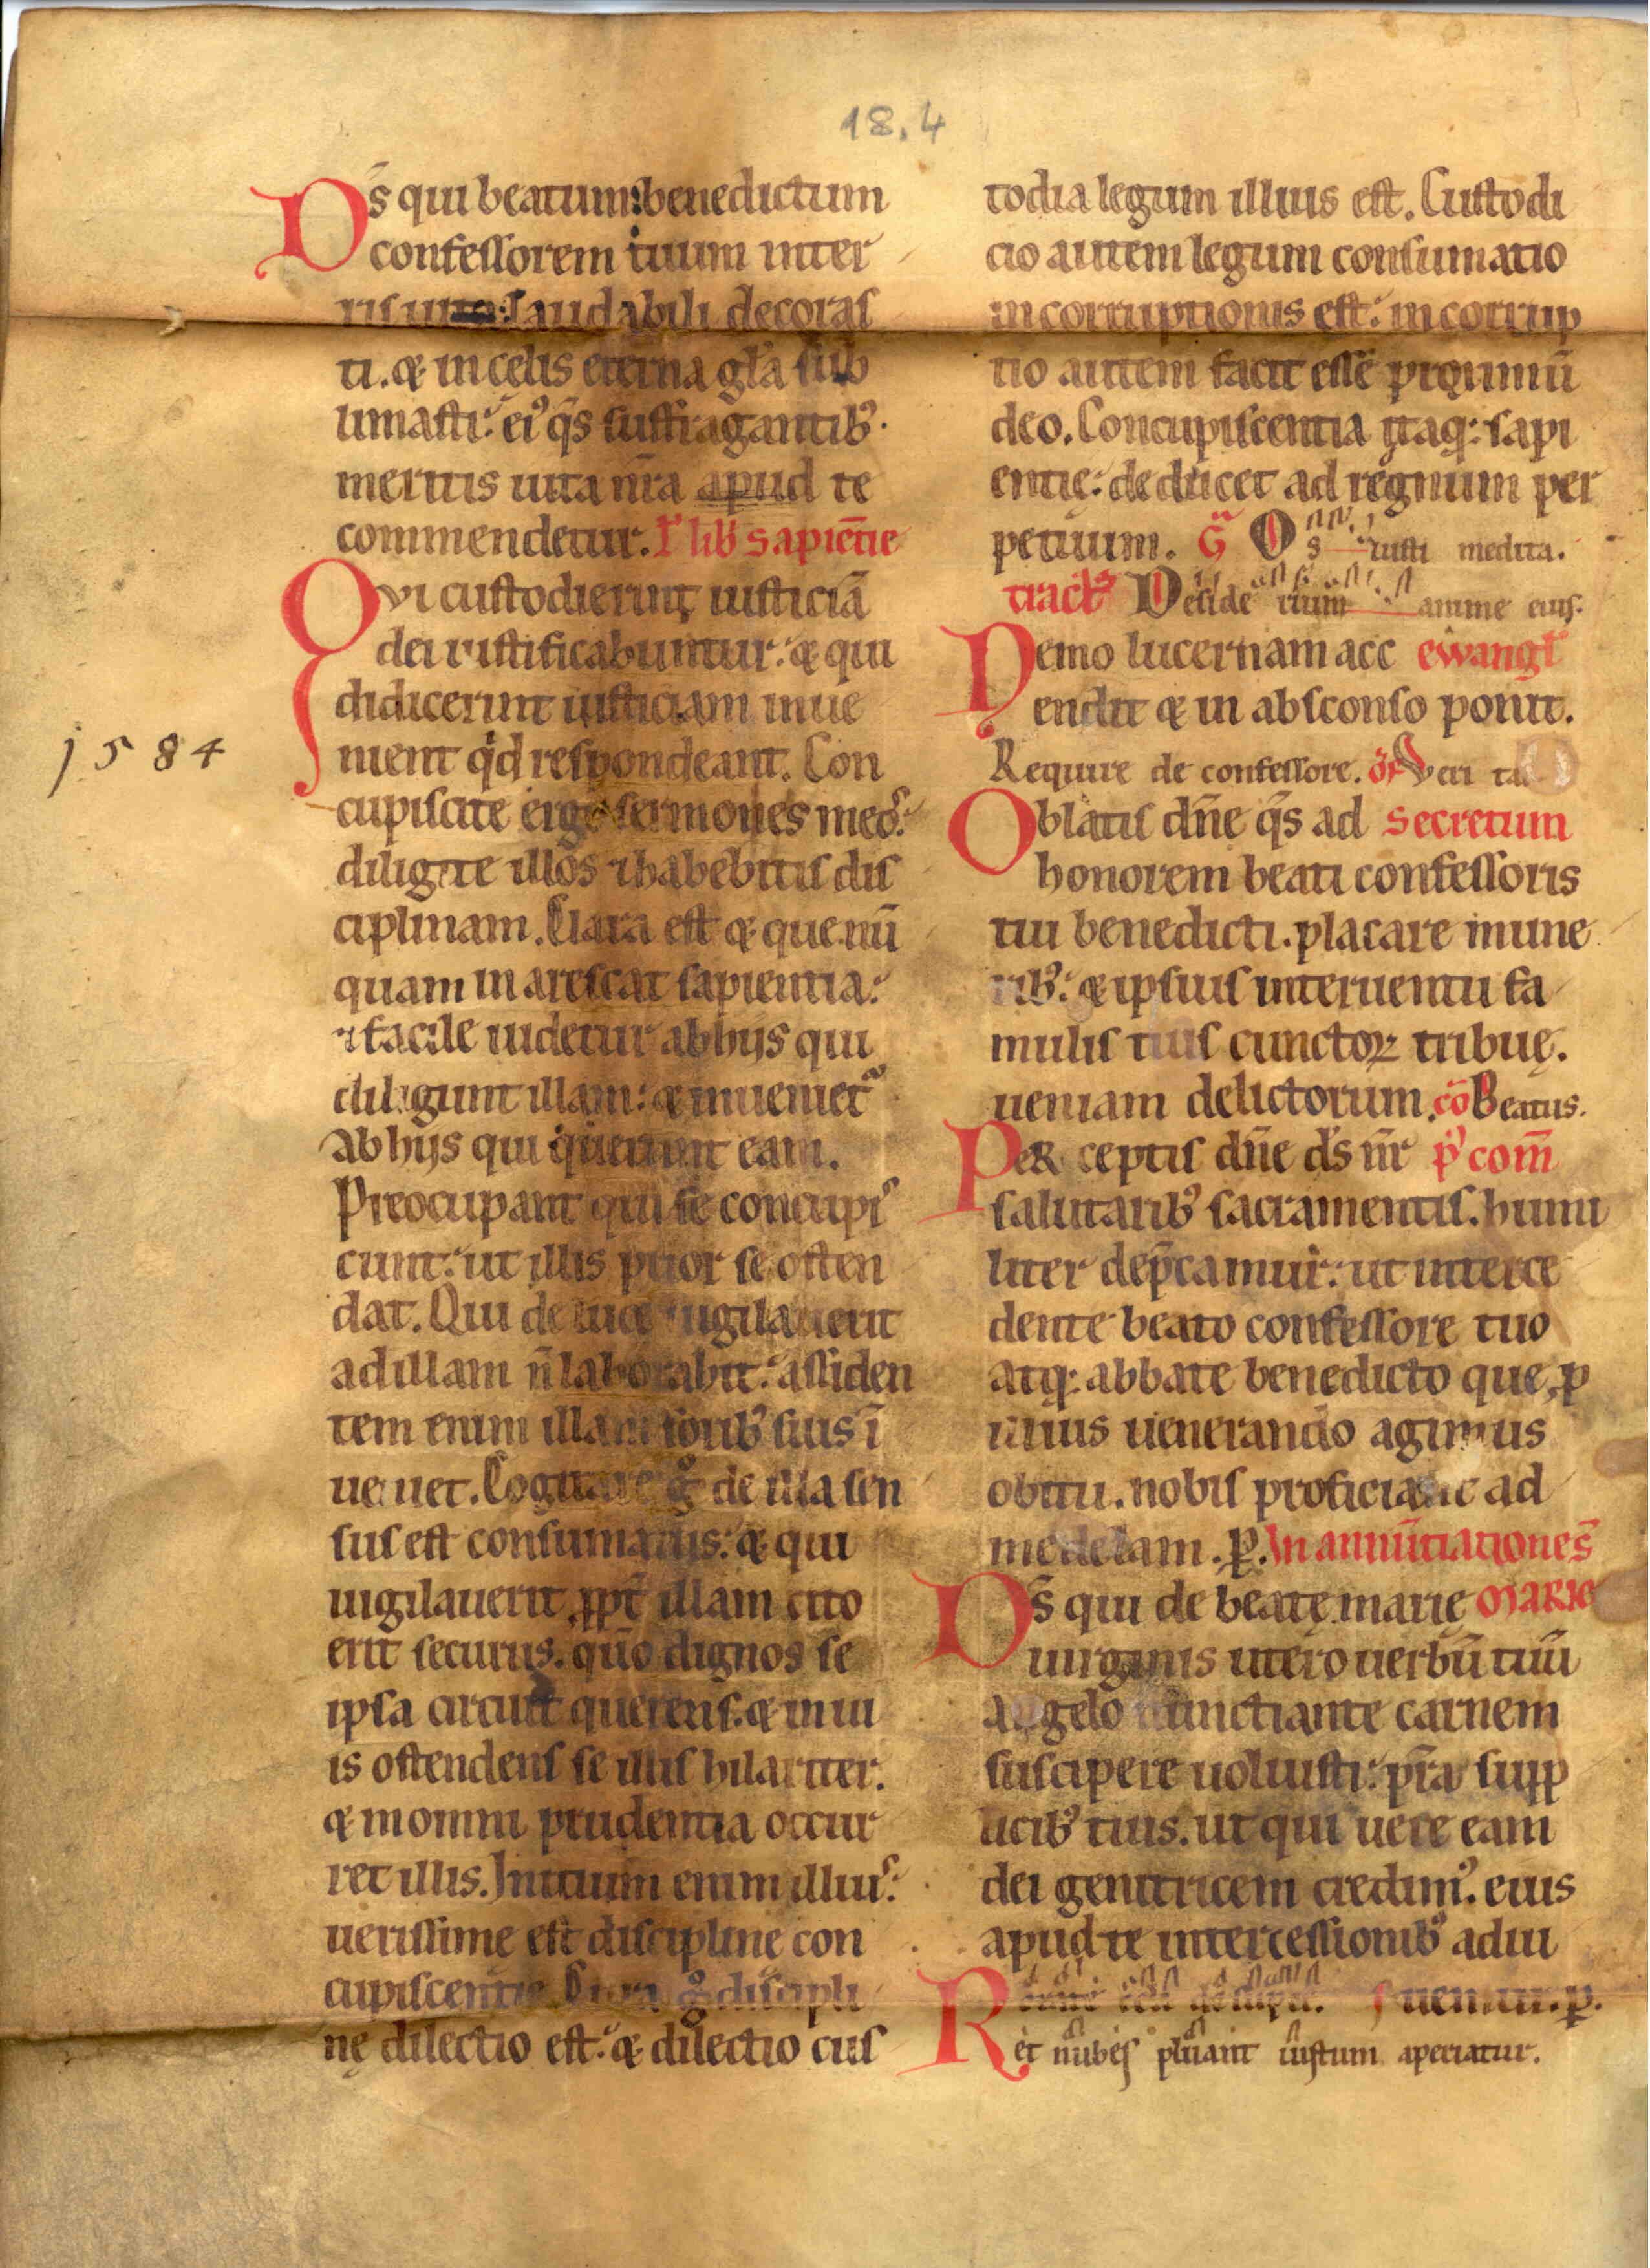 18.4
Ds̄ qui beatum benedictum
confessorem tuum inter
laudabili decoras
ti. & in celis eterna gl̄a sub
limasti: ei⁹ q̄s suffragantib⁹
meritis uita nr̄a apud te
commendetur. lib̄ sapien̄tie
Qvi custodierint iusticiā
dei iustificabuntur: & qui
didicerint iusticiam inue
1584
nient qd̄ respondeant. Con
cupiscite ergo sermones meos:
diligite illos ⁊ habebitis dis
ciplinam. Clara est & que nū
quam marescat sapientia:
⁊ facile uidetur ab hijs qui
diligunt illam: & inueniet᷑
ab hijs qui querunt eam.
Preocupant qui se concupis
cunt: ut illis prior se osten
dat. Qui de luce uigilauerit
ad illam n̄ laborabit: assiden
tem enim illam forib⁹ suis ī
ueniet. Cogitare gͦ de illa sen
sus est consumatus: & qui
uigilauerit ꝓpt̄ illam cito
erit securus. quō dignos se
ipsa circuit querens. & in ui
is ostendens se illis hilariter.
& in omni prudentia occur
ret illis. Initium enim illius:
uerissime est discipline con
cupiscentia. Cura gͦ discipli
nę dilectio est: & dilectio cus
todia legum illius est. Custodi
cio autem legum consumatio
incorruptionis est: incorrup
tio autem facit esse proximū
deo. Concupiscentia itaq: sapi
entię: deducet ad regnum per
petuum. G̃ Os iusti medita.
tract᷒ Deside rium anime eius.
Nemo lucernam acc ewangl̄
endit & in absconso ponit.
Require de confessore. of̄ Veri ta
Oblatis dn̄e q̄s ad secretum
honorem beati confessoris
tui benedicti. placare mune
rib⁹: & ipsius interuentu fa
mulis tuis cunctoꝝ tribuę.
ueniam delictorum. cō Beatus.
PeR ceptis dn̄e ds̄ nr̄ p⁹ com̄
salutarib⁹ sacramentis. humi
liter dep̄camur: ut interce
dente beato confessore tuo
atq: abbate benedicto que ꝓ
illius uenerando agimus
obitu. nobis proficiant ad
medelam. ꝑ. In annūtiatione s̄
Ds̄ qui de beatę marię MARIE
uirginis utero uerbū tuū
angelo nunctiante carnem
suscipere uoluisti: pr̄a supp
licib⁹ tuis. ut qui uere eam
dei genitricem credim⁹. eius
apud te intercessionib⁹ adiu
Rorate celi desuper. uemur. ꝑ.
et nubes pluant iustum aperiatur.